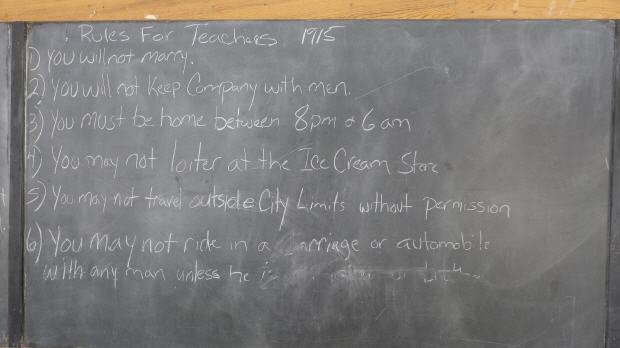 Rules For Teachers 1915
1) You will not marry.
2) You will not Keep Company with men.
3) You must be home between 8pm & 6am
4) You may not loiter at the Ice Cream Store
5) You may not travel outside City Limits without permission
6) You may not ride in a carriage or automobile
with any man unless he is